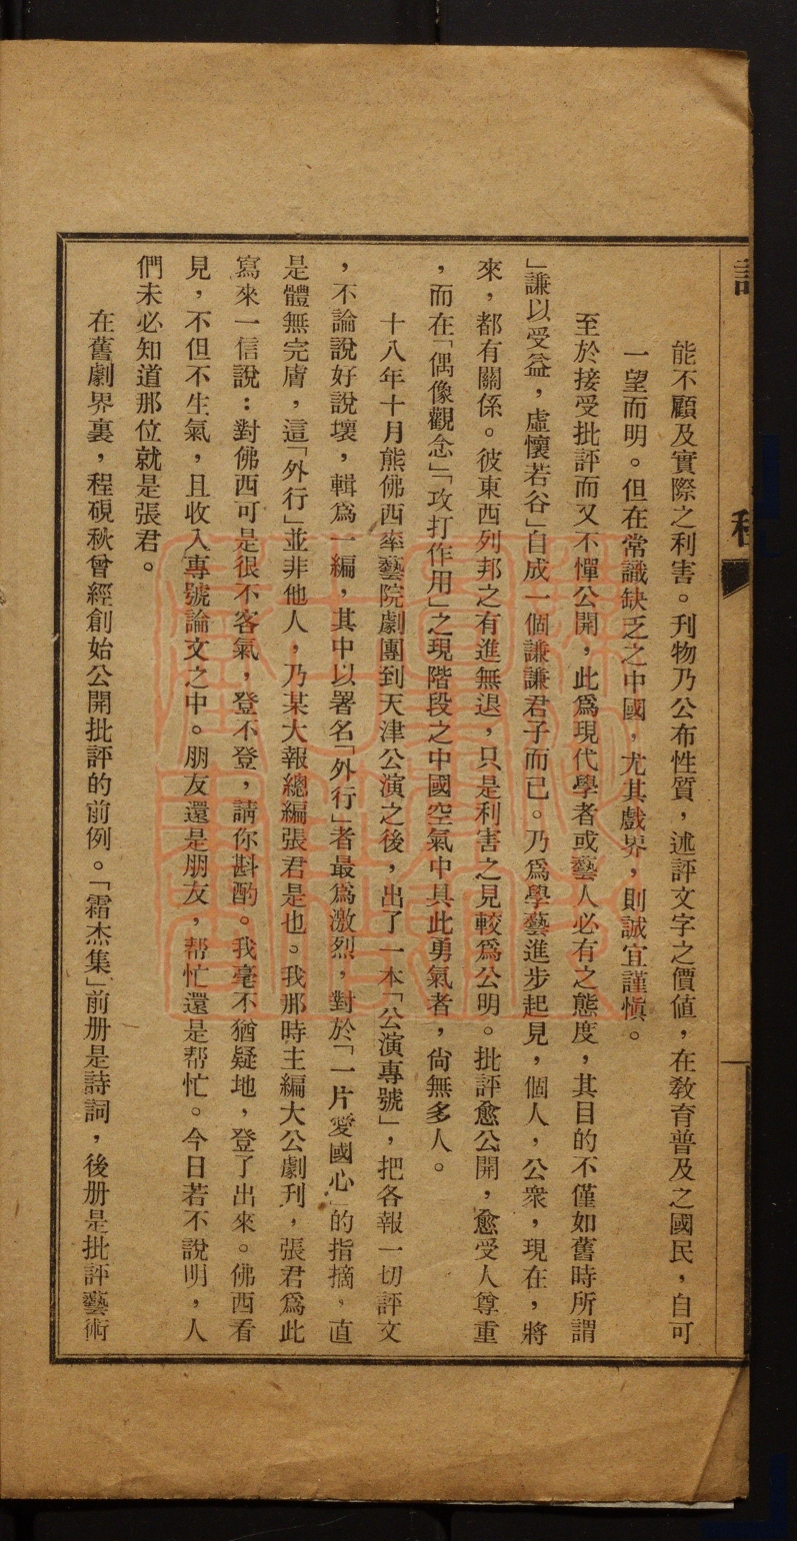 程
能不顧及實際之利害。刊物乃公布性質，述評文字之價値，在敎育普及之國民，自可
一望而明。但在常識缺乏之中國，尤其戲界，則誠宜謹愼。
至於接受批評而又不憚公開，此爲現代學者或藝人必有之態度，其目的不僅如舊時所謂
」謙以受益，虛懷若谷」自成一個謙謙君子而已。乃爲學藝進步起見，個人，公衆，現在，將
來，都有關係。彼東西列邦之有進無退，只是利害之見較爲公明。批評愈公開，愈受人尊重
，而在「偶像觀念」「攻打作用」之現階段之中國空氣中具此勇氣者，尙無多人。
十八年十月熊佛西率藝院劇團到天津公演之後，出了一本「公演專號」，把各報一切評文
，不論說好說壞，輯爲一編，其中以署名「外行」者最爲激烈，對於「一片愛國心」的指摘，直
是體無完膚，這「外行」並非他人，乃某大報總編張君是也。我那時主編大公劇刋，張君爲此
寫來一信說：對佛西可是很不客氣，登不登，請你斟酌。我毫不猶疑地，登了出來。佛西看
見，不但不生氣，且收入專號論文之中。朋友還是朋友，帮忙還是帮忙。今日若不說明，人
們未必知道那位就是張君。
在舊劇界裏，程硯秋曾經創始公開批評的前例。「霜杰集」前册是詩詞，後册是批評藝術